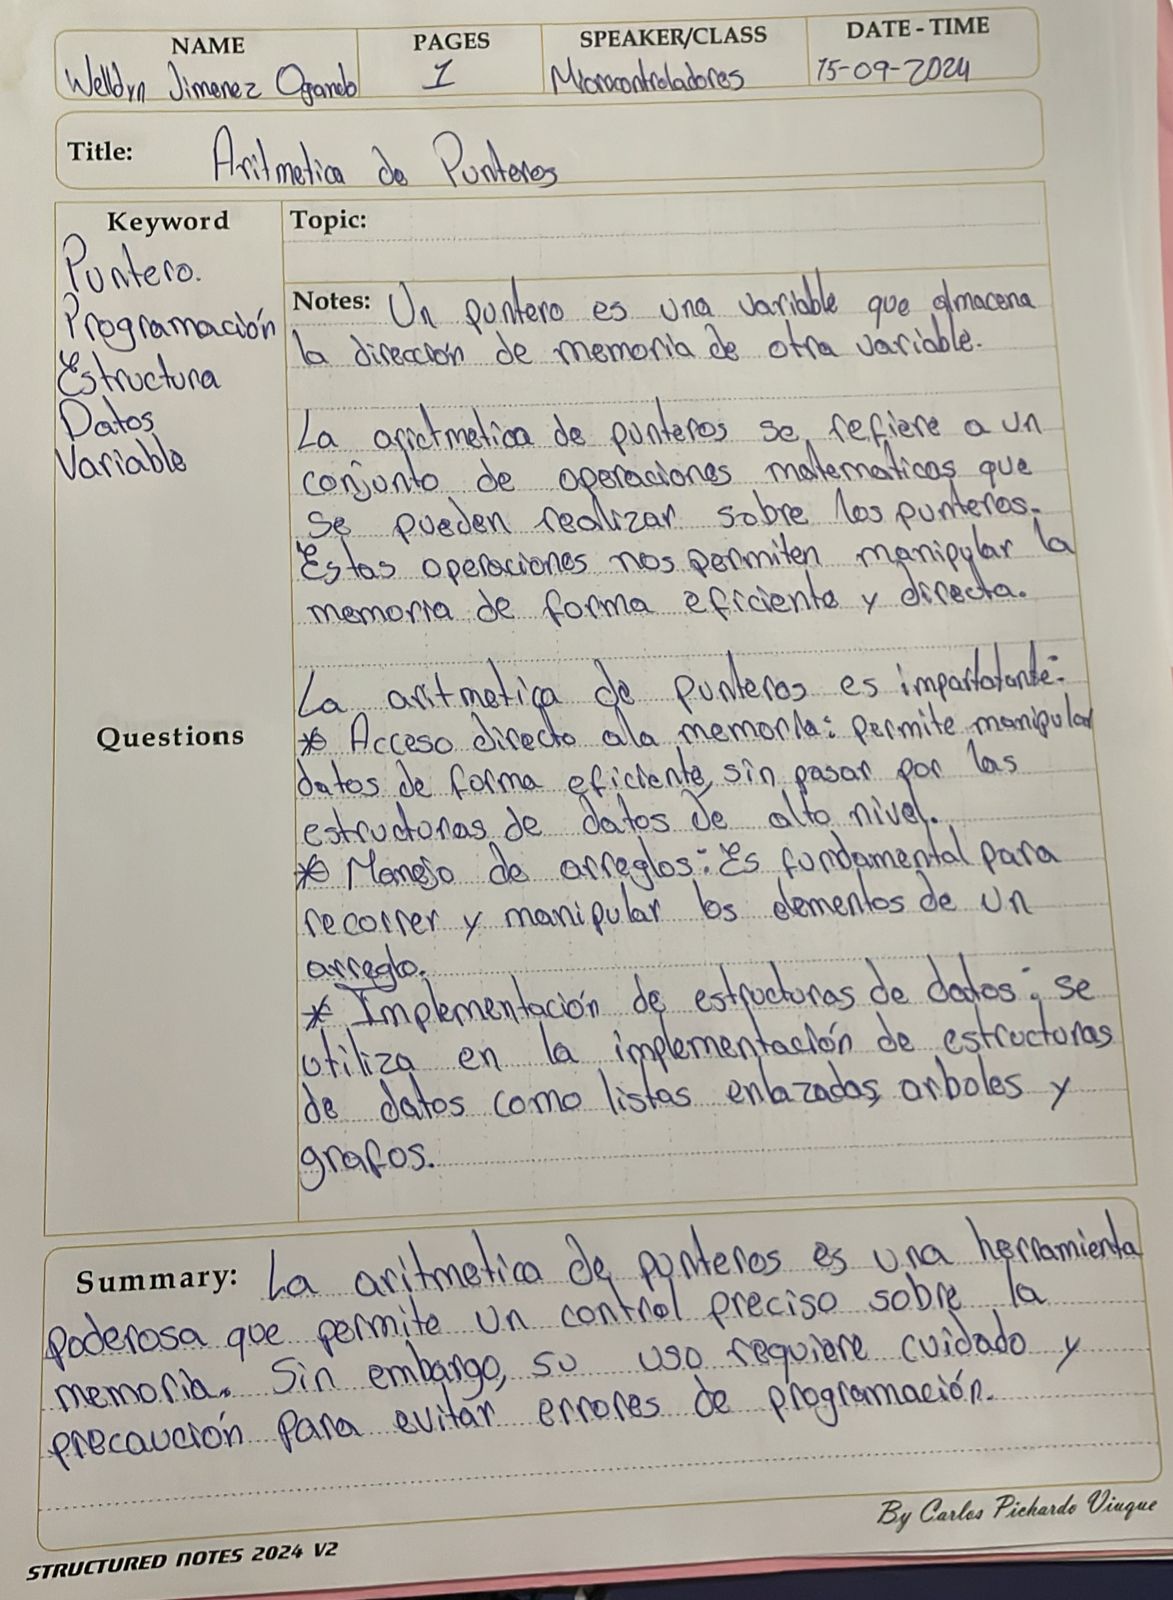 NAME PAGES SPEAKER/CLASS DATE - TIME
Welldyn Jimenez Ogando 1 Microcontroladores 15-09-2024
Title: Aritmetica de Punteros
Keyword
Puntero.
Programación
Estructura
Datos
Variable
Questions
Topic:
Notes: Un puntero es una variable que almacena
la dirección de memoria de otra variable.
La arictmetica de punteros se refiere a un
conjunto de operaciones matematicas que
se pueden realizar sobre los punteros.
Estas operaciones nos permiten manipular la
memoria de forma eficiente y directa.
La aritmetica de punteros es impartatante:
* Acceso directo ala memoria: permite manipular
datos de forma eficiente, sin pasar por las
estructuras de datos de alto nivel.
* Manejo de arreglos: Es fundamental para
recorrer y manipular los elementos de un
arreglo.
* Implementación de estructuras de datos: se
utiliza en la implementación de estructuras
de datos como listas enlazadas, arboles y
grafos.
Summary: La aritmetica de punteros es una herramienta
poderosa que permite un control preciso sobre la
memoria. Sin embargo, su uso requiere cuidado y
precaución para evitar errores de programación.
By Carlos Pichardo Viuque
STRUCTURED NOTES 2024 V2